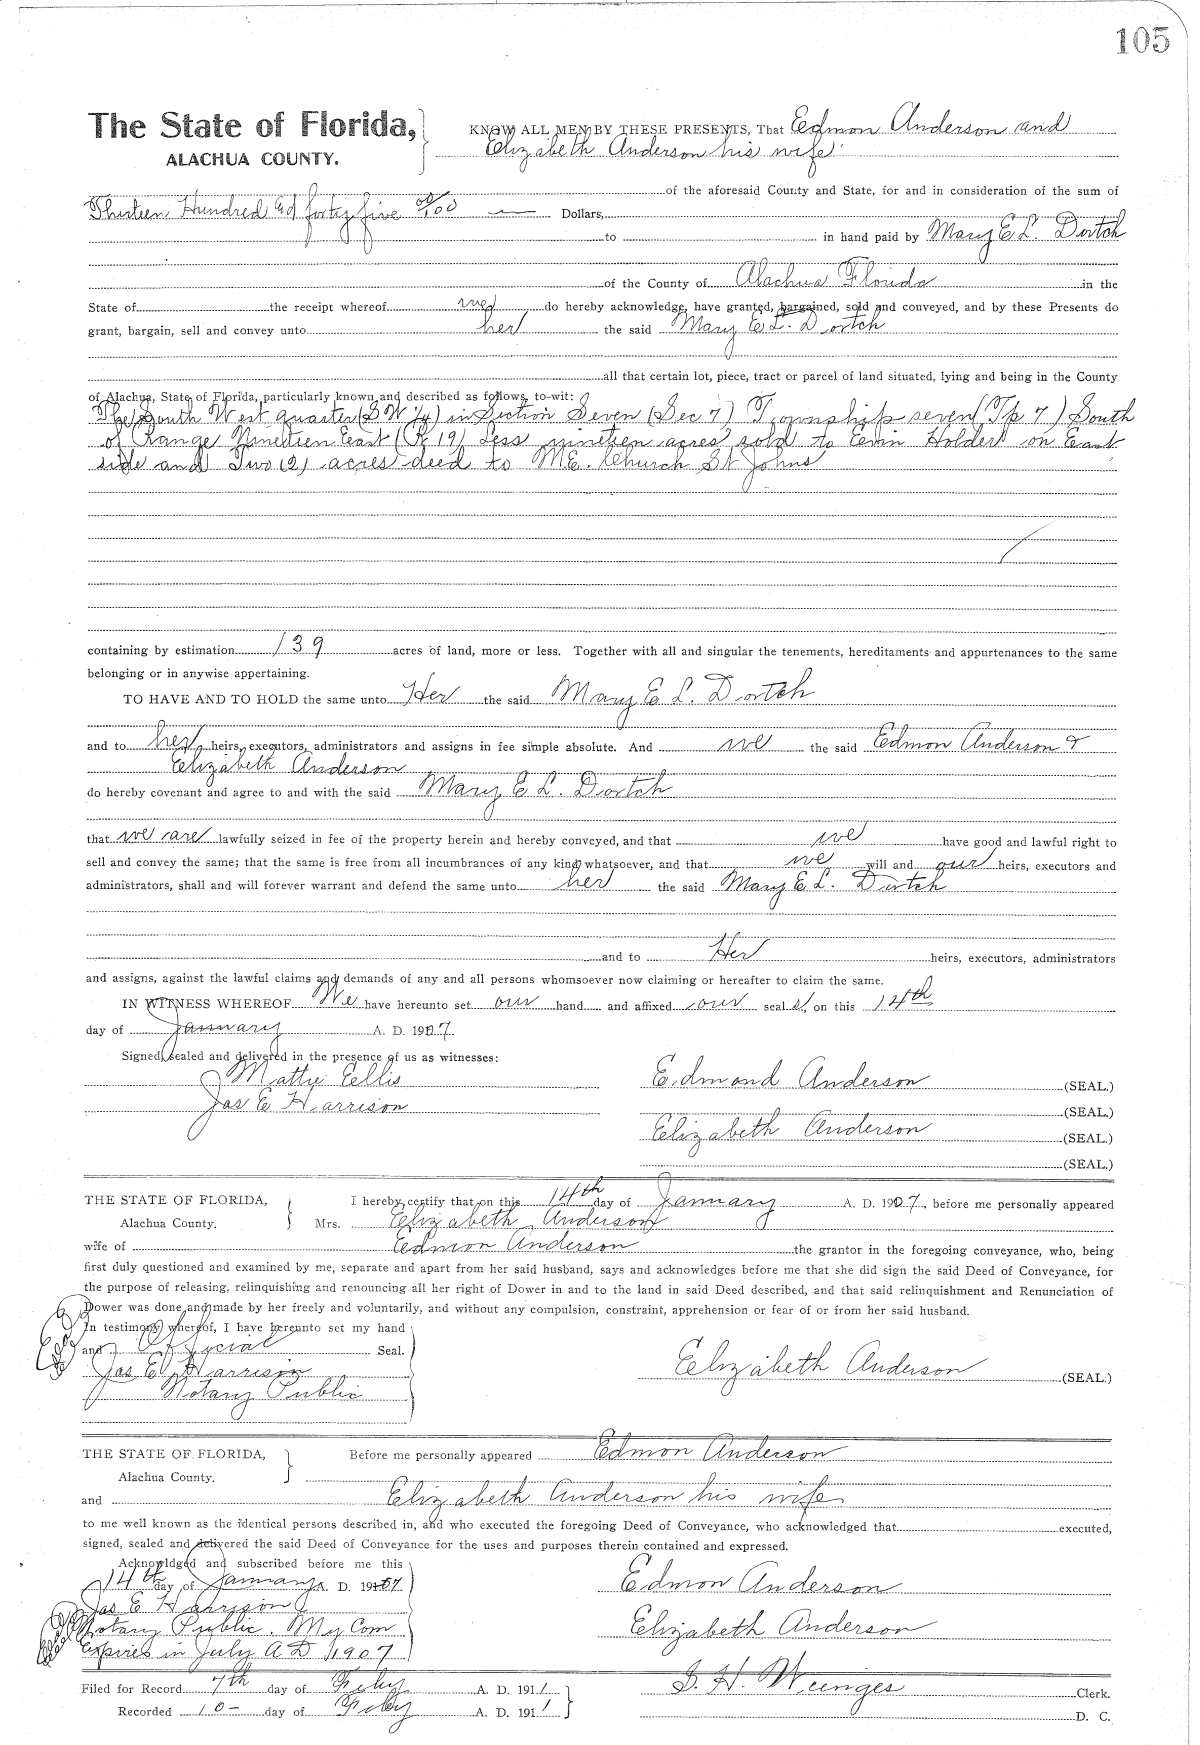 105
The State of Florida,
ALACHUA COUNTY.
KNOW ALL MEN BY THESE PRESENTS, That Edmon Anderson and
Elizabeth Anderson his wife
of the aforesaid County and State, for and in consideration of the sum of
Thirteen Hundred and forty five 00/100 Dollars,
to in hand paid by Mary E L. Dortch
of the County of Alachua Florida in the
State of the receipt whereof we do hereby acknowledge, have granted, bargained, sold and conveyed, and by these Presents do
grant, bargain, sell and convey unto her the said Mary E L. Dortch
all that certain lot, piece, tract or parcel of land situated, lying and being in the County
of Alachua, State of Florida, particularly known and described as follows, to-wit:
The South West quarter (S W 1/4) in Section Seven (Sec 7) Township seven (Tp 7) South
of Range Nineteen East (R 19) Less nineteen acres sold to Holder on East
side and Two (2) acres deed to M.E. Church St Johns
containing by estimation 139 acres of land, more or less. Together with all and singular the tenements, hereditaments and appurtenances to the same
belonging or in anywise appertaining.
TO HAVE AND TO HOLD the same unto Her the said Mary E L. Dortch
and to her heirs, executors, administrators and assigns in fee simple absolute. And we the said Edmon Anderson &
Elizabeth Anderson
do hereby covenant and agree to and with the said Mary E L. Dortch
that we are lawfully seized in fee of the property herein and hereby conveyed, and that we have good and lawful right to
sell and convey the same; that the same is free from all incumbrances of any kind whatsoever, and that we will and our heirs, executors and
administrators, shall and will forever warrant and defend the same unto her the said Mary E L. Dortch
and to Her heirs, executors, administrators
and assigns, against the lawful claims and demands of any and all persons whomsoever now claiming or hereafter to claim the same.
IN WITNESS WHEREOF We have hereunto set our hand and affixed our seal s, on this 14th
day of January A. D. 1907
Signed, sealed and delivered in the presence of us as witnesses:
Mattie Ellis
Jas E Harrison
Edmond Anderson (SEAL.)
(SEAL.)
Elizabeth Anderson (SEAL.)
(SEAL.)
THE STATE OF FLORIDA,
Alachua County.
I hereby certify that on this 14th day of January A. D. 1907, before me personally appeared
Mrs. Elizabeth Anderson
wife of Edmon Anderson the grantor in the foregoing conveyance, who, being
first duly questioned and examined by me, separate and apart from her said husband, says and acknowledges before me that she did sign the said Deed of Conveyance, for
the purpose of releasing, relinquishing and renouncing all her right of Dower in and to the land in said Deed described, and that said relinquishment and Renunciation of
Dower was done and made by her freely and voluntarily, and without any compulsion, constraint, apprehension or fear of or from her said husband.
In testimony whereof, I have hereunto set my hand
and Official Seal.
Jas E Harrison
Notary Public
Elizabeth Anderson (SEAL.)
THE STATE OF FLORIDA,
Alachua County.
Before me personally appeared Edmon Anderson
and Elizabeth Anderson his wife
to me well known as the identical persons described in, and who executed the foregoing Deed of Conveyance, who acknowledged that executed,
signed, sealed and delivered the said Deed of Conveyance for the uses and purposes therein contained and expressed.
Acknowldged and subscribed before me this
14th day of January A. D. 1907
Jas E Harrison
Notary Public. My Com
Expires in July A D 1907
Edmon Anderson
Elizabeth Anderson
Filed for Record 7th day of Feby A. D. 1911
Recorded 10- day of Feby A. D. 1911
S. H. Wienges Clerk.
D. C.